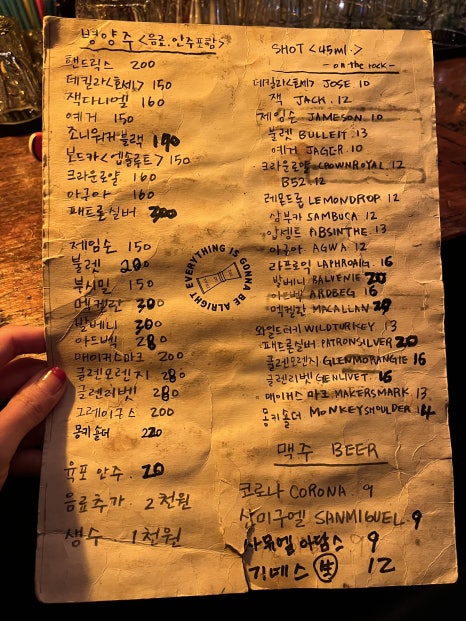 병양주 <음료.안주포함>
핸드릭스 200
데킬라<호세> 150
잭다니엘 160
예거 150
조니워커블랙 190
보드카<앱솔루트> 150
크라운로얄 160
아구아 160
패트론실버 300
제임슨 150
불렛 200
부시밀 150
멕켈란 300
발베니 300
아드벡 280
메이커스마크 200
글렌모렌지 280
글렌리벳 280
그레이구스 200
몽키숄더 220
육포 안주 20
음료추가 2천원
생수 1천원
EVERYTHING IS GONNA BE ALRIGHT
SHOT <45ml.>
- on the rock -
데킬라<호세> JOSE 10
잭 JACK. 12
제임슨 JAMESON 10
불렛 BULLEIT. 13
예거 JAGER. 10
크라운로얄 CROWNROYAL. 12
B52. 12
레몬드롭 LEMONDROP. 12
삼부카 SAMBUCA. 12
압센트 ABSINTHE. 13
아구아 AGWA. 12
라프로익 LAPHROAIG. 16
발베니 BALVENIE 20
아드벡 ARDBEG. 16
멕켈란 MACALLAN 20
와일드터키 WILDTURKEY. 13
패트론실버 PATRONSILVER 20
글렌모렌지 GLENMORANGIE 16
글렌리벳 GLENLIVET. 16
메이커스 마크 MAKERSMARK. 13
몽키숄더 MONKEYSHOULDER 14
맥주 BEER
코로나 CORONA. 9
산미구엘 SANMIGUEL. 9
사무엘 아담스 9
기네스 生 12